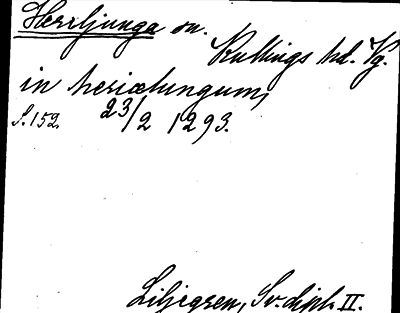 Herrljunga sn.
Kullings hd. Vg.
in heriælungum,
S. 152. 23/2 1293.
Liljegren, Sv. dipl. II.